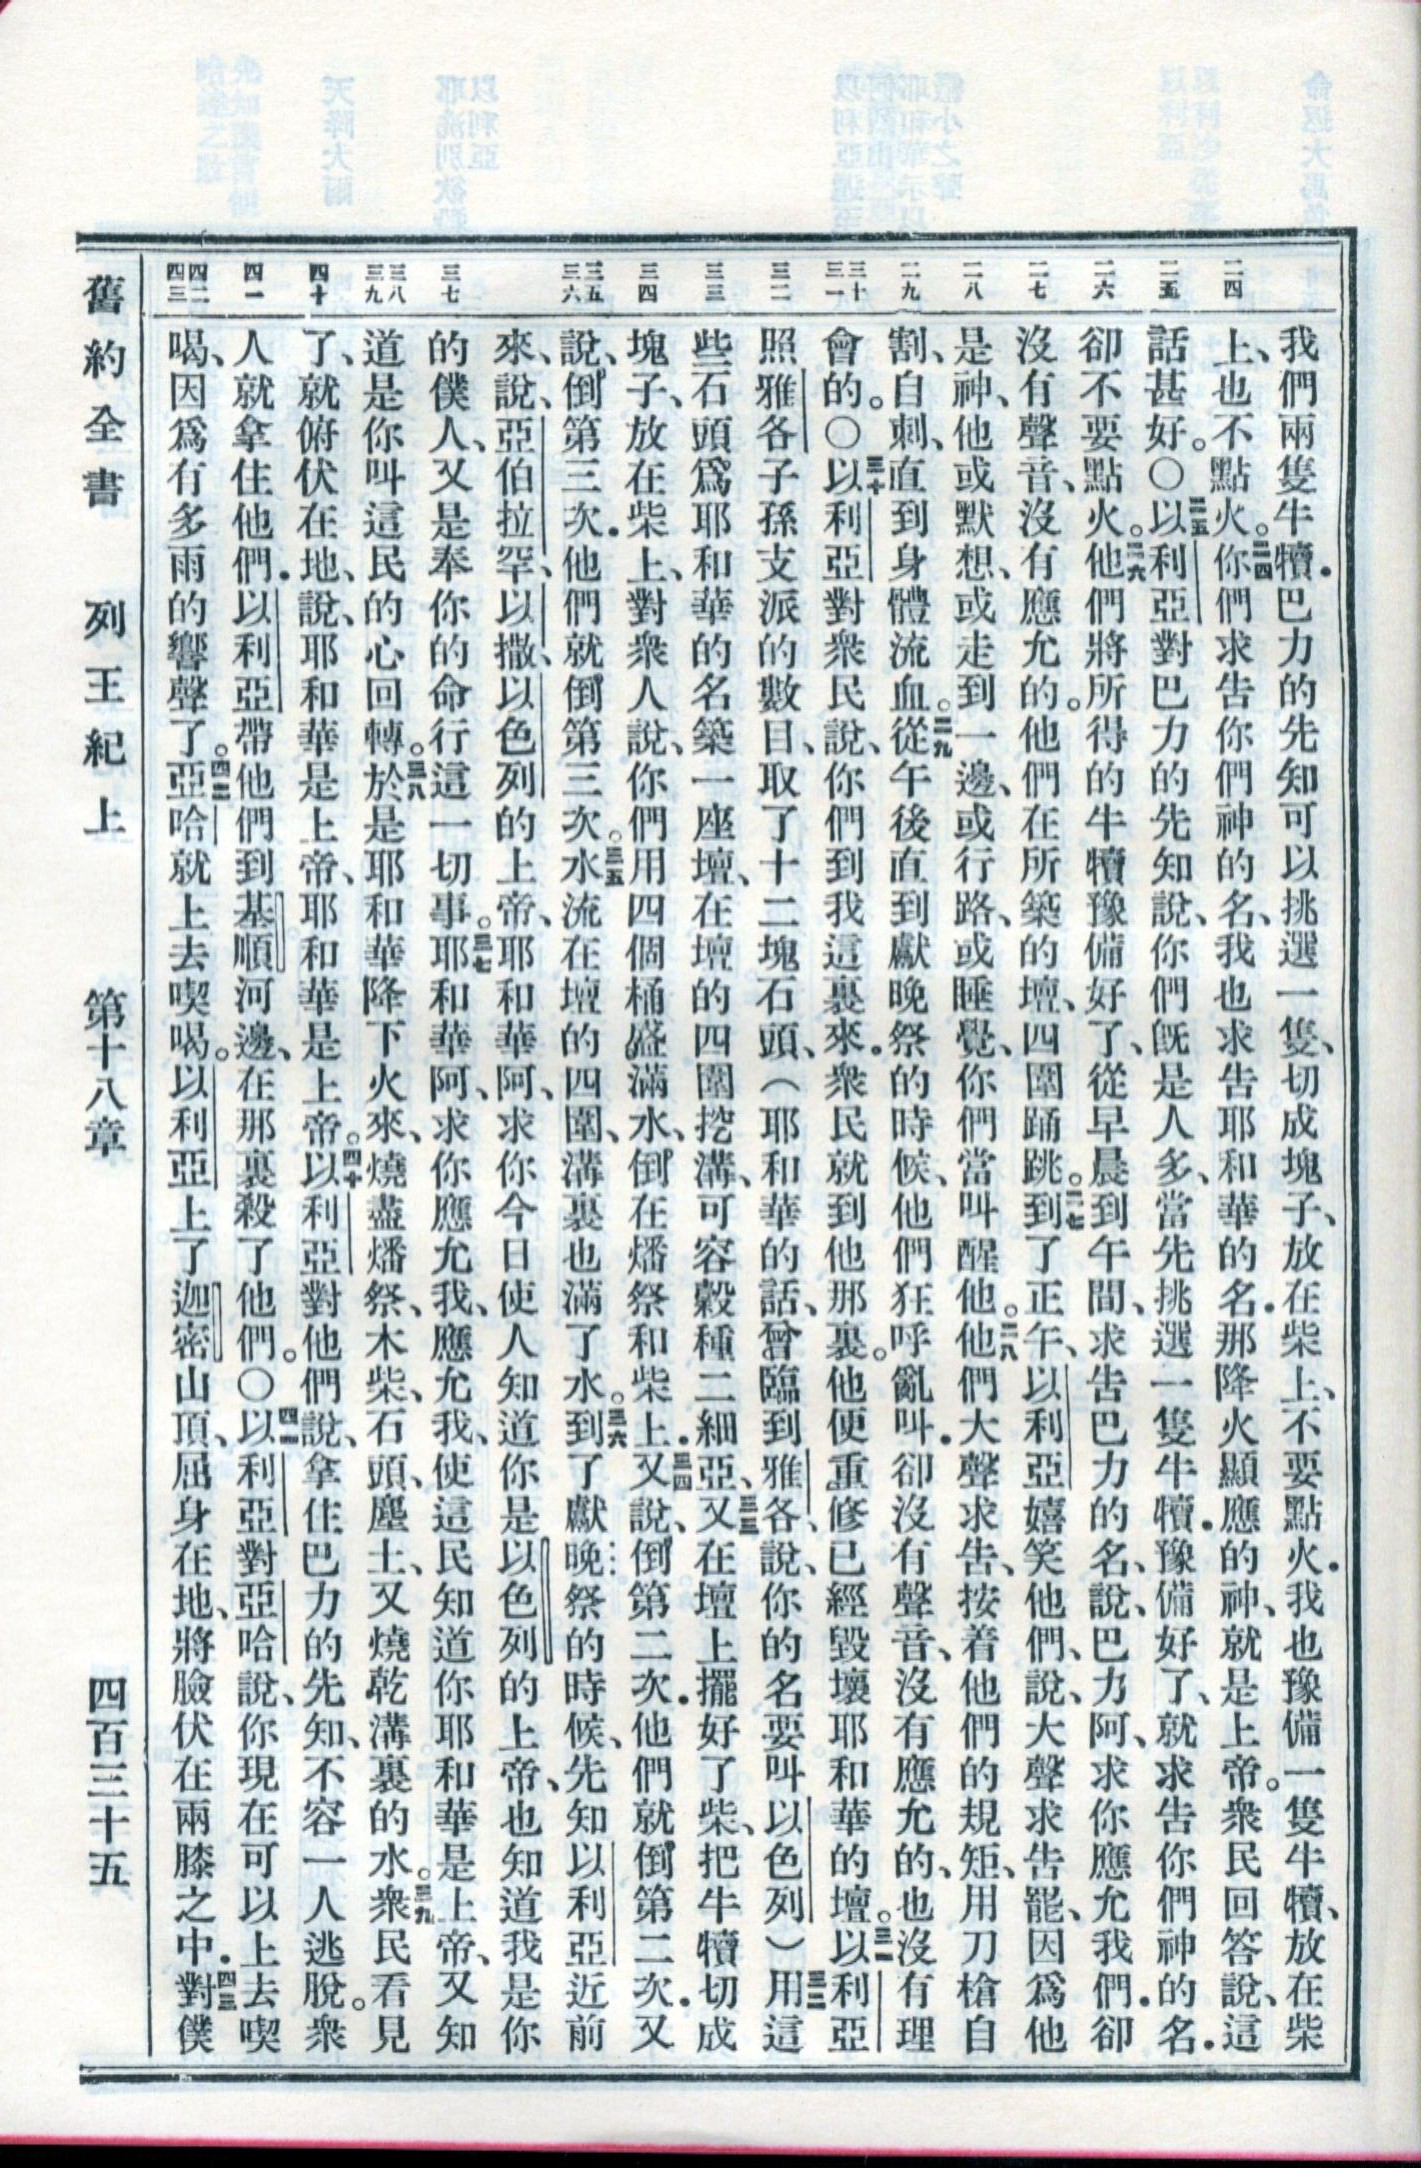 我們兩隻牛犢．巴力的先知可以挑選一隻、切成塊子、放在柴上、不要點火．我也豫備一隻牛犢、放在柴
二四
上、也不點火。二四你們求告你們神的名、我也求告耶和華的名．那降火顯應的神、就是上帝。衆民回答說、這
二五
話甚好。〇二五以利亞對巴力的先知說、你們旣是人多、當先挑選一隻牛犢．豫備好了、就求告你們神的名．
二六
卻不要點火。二六他們將所得的牛犢豫備好了、從早晨到午間、求告巴力的名、說、巴力阿、求你應允我們．卻
二七
沒有聲音、沒有應允的。他們在所築的壇、四圍踊跳。二七到了正午、以利亞嬉笑他們、說、大聲求告罷、因爲他
二八
是神、他或默想、或走到一邊、或行路、或睡覺、你們當叫醒他。二八他們大聲求告、按着他們的規矩、用刀槍自
二九
割、自刺、直到身體流血。二九從午後直到獻晚祭的時候、他們狂呼亂叫．卻沒有聲音、沒有應允的、也沒有理
三十
三一
會的。〇三十以利亞對衆民說、你們到我這裏來．衆民就到他那裏。他便重修已經毀壞耶和華的壇。三一以利亞
三二
照雅各子孫支派的數目、取了十二塊石頭、（耶和華的話、曾臨到雅各、說、你的名要叫以色列）三二用這
三三
些石頭爲耶和華的名築一座壇、在壇的四圍挖溝、可容穀種二細亞、三三又在壇上擺好了柴、把牛犢切成
三四
塊子、放在柴上、對衆人說、你們用四個桶盛滿水、倒在燔祭和柴上．三四又說、倒第二次．他們就倒第二次．又
三五
三六
說、倒第三次．他們就倒第三次。三五水流在壇的四圍、溝裏也滿了水。三六到了獻晚祭的時候、先知以利亞近前
來、說、亞伯拉罕、以撒、以色列的上帝、耶和華阿、求你今日使人知道你是以色列的上帝、也知道我是你
三七
的僕人、又是奉你的命行這一切事。三七耶和華阿、求你應允我、應允我、使這民知道你耶和華是上帝、又知
三八
三九
道是你叫這民的心回轉。三八於是耶和華降下火來、燒盡燔祭、木柴、石頭、塵土、又燒乾溝裏的水。三九衆民看見
四十
了、就俯伏在地、說、耶和華是上帝、耶和華是上帝。四十以利亞對他們說、拿住巴力的先知、不容一人逃脫。衆
四一
人就拿住他們．以利亞帶他們到基順河邊、在那裏殺了他們。〇四一以利亞對亞哈說、你現在可以上去喫
四二
四三
喝、因爲有多雨的響聲了。四二亞哈就上去喫喝。以利亞上了迦密山頂、屈身在地、將臉伏在兩膝之中．四三對僕
舊約全書　列王紀上　第十八章　四百三十五